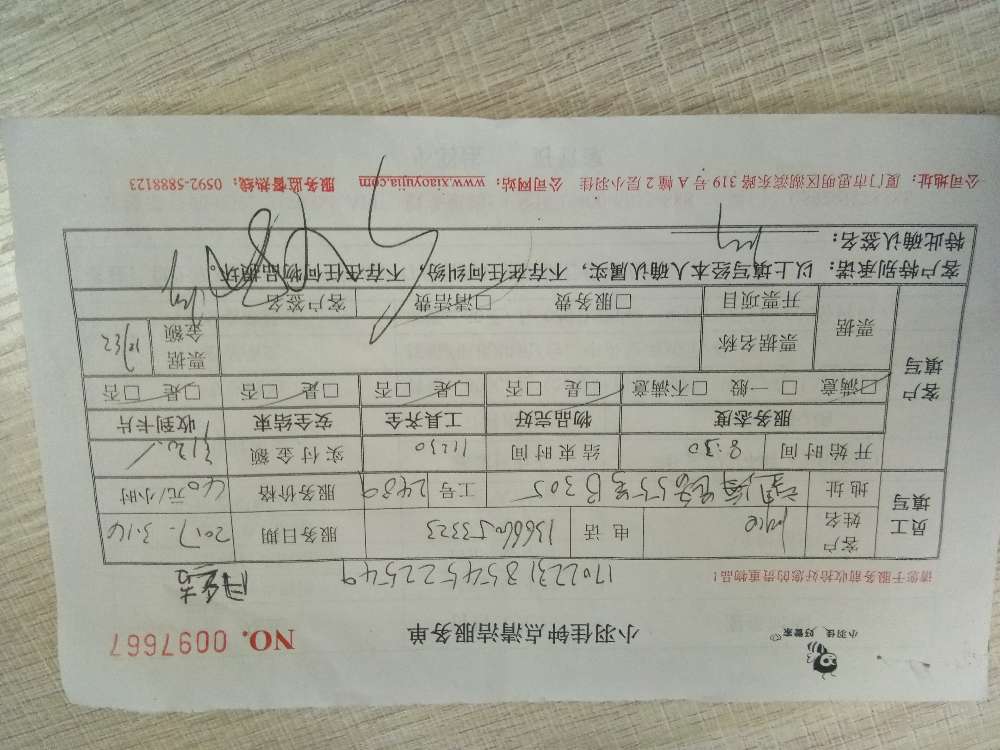 小羽佳 好管家
小羽佳钟点清洁服务单
NO. 0097667
请您于服务前收拾好您的贵重物品!
17022313545225549
员工填写
客户姓名
电话 13666053323
服务日期 2017.3.16
地址
望海路55号B305
工号 2489
服务价格 40元/小时
开始时间 8:30
结束时间 11:30
实付金额 120
客户填写
服务态度 物品完好 工具齐全 安全结束 收到卡片
□满意 □一般 □不满意 □是 □否 □是 □否 □是 □否 □是 □否
票据 票据名称 票据金额
开票项目 □服务费 □清洁费 客户签名
客户特别承诺:以上填写经本人确认属实,不存在任何纠纷,不存在任何物品损坏。
特此确认签名:
公司地址:厦门市思明区湖滨东路 319 号 A 幢 2 层小羽佳 公司网站:www.xiaoyujia.com 服务监督热线:0592-5888123